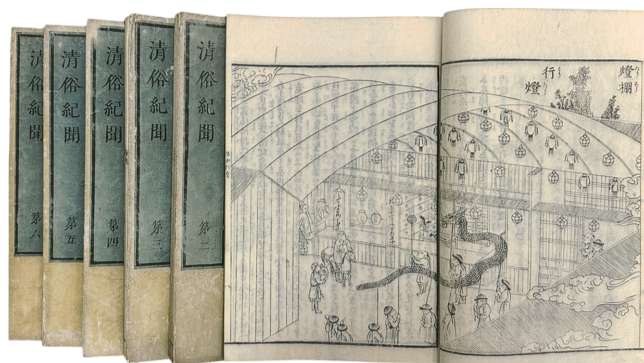 清俗紀聞
第六
清俗紀聞
第五
清俗紀聞
第四
清俗紀聞
第三
清俗紀聞
第二
燈棚
行燈